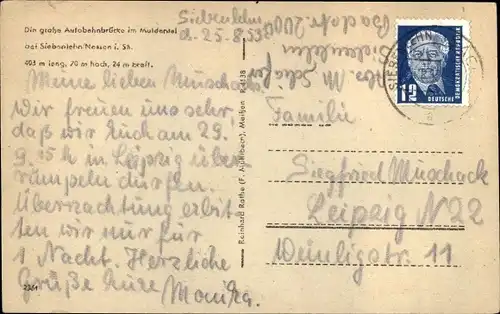 Die große Autobahnbrücke im Muldental
bei Siebenlehn/Nossen i. Sa.
403 m lang, 70 m hoch, 24 m breit.
Siebenlehn
d. 25.8.53
Meine lieben Muschacks
Wir freuen uns sehr,
daß wir Euch am 29.
9.15 h in Leipzig über-
rumpeln dürfen.
Übernachtung erbit-
ten wir nur für
1 Nacht. Herzliche
Grüße Eure Monika.
Abs. M. Schäfer
Siebenlehn
Badstr. 200
Reinhard Rothe (F. A. Hilbert), Meißen
SIEBENLEHN
12
DEUTSCHE
DEMOKRATISCHE REPUBLIK
Familie
Siegfried Muschack
Leipzig N 22
Weinligstr. 11